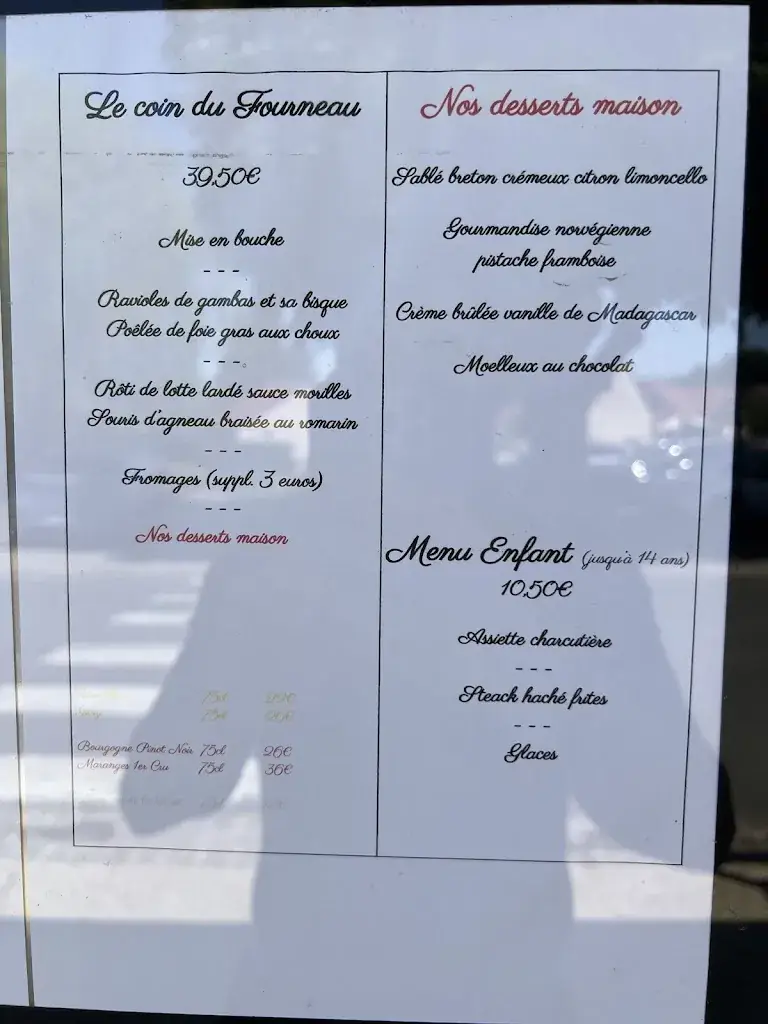 Le coin du Fourneau
39,50€
Mise en bouche
- - -
Ravioles de gambas et sa bisque
Poêlée de foie gras aux choux
- - -
Rôti de lotte lardé sauce morilles
Souris d'agneau braisée au romarin
- - -
Fromages (suppl. 3 euros)
- - -
Nos desserts maison
75cl
75cl
Bourgogne Pinot Noir 75cl 26€
Maranges 1er Cru 75cl 36€
Nos desserts maison
Sablé breton crémeux citron limoncello
Gourmandise norvégienne
pistache framboise
Crème brûlée vanille de Madagascar
Moelleux au chocolat
Menu Enfant (jusqu'à 14 ans)
10,50€
Assiette charcutière
- - -
Steack haché frites
- - -
Glaces